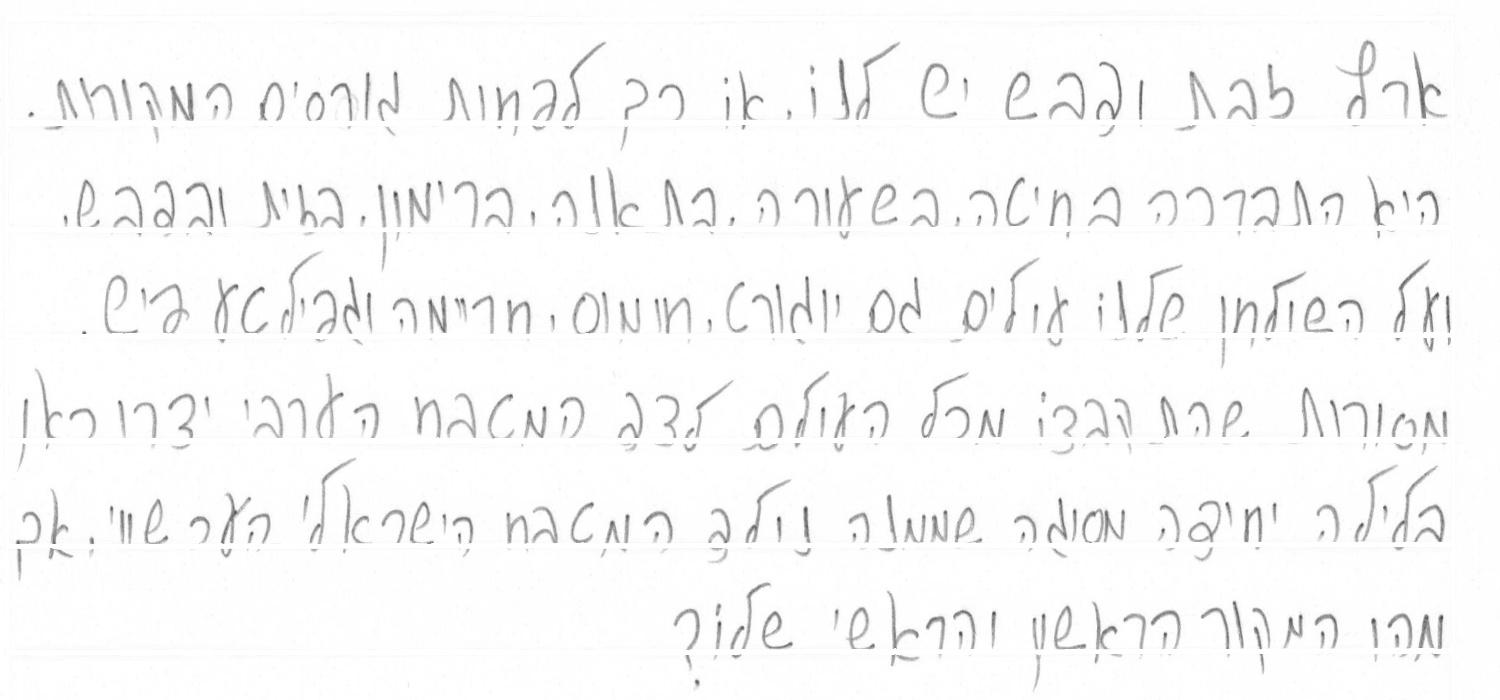 ארץ זבת ודבש יש לנו, או כך לפחות גורסים המקורות.
היא התברכה בחיטה, בשעורה, בתאנה, ברימון, בזית ובדבש,
ועל השולחן שלנו עולים גם יוגורט, חומוס, חריימה וגפילטע פיש.
מסורות שהתקבצו מכל העולם לצד המטבח הערבי יצרו כאן
בלילה יחידה מסוגה שממנה נולד המטבח הישראלי העכשווי, אך
מהו המקור הראשון והראשי שלו?